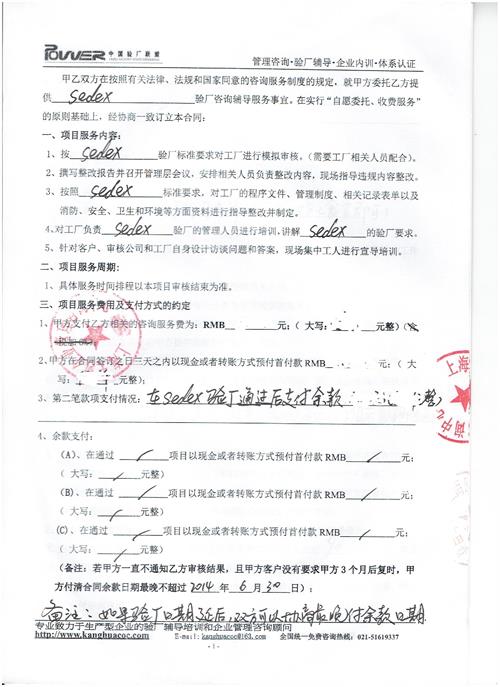 POWER 中国验厂联盟
管理咨询·验厂辅导·企业内训·体系认证
甲乙双方在按照有关法律、法规和国家同意的咨询服务制度的规定，就甲方委托乙方提
供 sedex 验厂咨询辅导服务事宜。在实行“自愿委托、收费服务”
的原则基础上，经协商一致订立本合同：
一、项目服务内容：
1、按 sedex 验厂标准要求对工厂进行模拟审核。（需要工厂相关人员配合）。
2、撰写整改报告并召开管理层会议，安排相关人员负责整改内容，现场指导违规内容整改。
3、按照 sedex 标准要求，对工厂的程序文件、管理制度、相关记录表单以及
消防、安全、卫生和环境等方面资料进行指导整改并制定。
4、对工厂负责 sedex 验厂的管理人员进行培训，讲解 sedex 的验厂要求。
5、针对客户、审核公司和工厂自身设计访谈问题和答案，现场集中工人进行宣导培训。
二、项目服务周期：
1、具体服务时间排程以本项目审核结束为准。
三、项目服务费用及支付方式的约定
1、甲方支付乙方相关的咨询服务费为：RMB 元；（大写： 万元整）
2、甲方在合同签订之日三天之内以现金或者转账方式预付首付款 RMB 元；（大
写： 元整）；
3、第二笔款项支付情况：在sedex验厂通过后支付余款 整）
4、余款支付：
(A)、在通过 / 项目以现金或者转账方式预付首付款 RMB / 元；
（大写： / 元整）
(B)、在通过 / 项目以现金或者转账方式预付首付款 RMB / 元；
（大写： / 元整）
(C)、在通过 / 项目以现金或者转账方式预付首付款 RMB / 元；
（大写： / 元整）
（备注：若甲方一直不通知乙方审核结果，且甲方客户没有要求甲方 3 个月后复时，甲
方付清合同余款日期最晚不超过 2014 年 6 月 30 日）；
备注：如果验厂日期延后，双方可以协商最晚付余款日期
专业致力于生产型企业的验厂辅导培训和企业管理咨询顾问
http://www.kanghuacoc.com E-mail: kanghuacoc@163.com 全国统一免费咨询热线：021-51619337
- 1 -